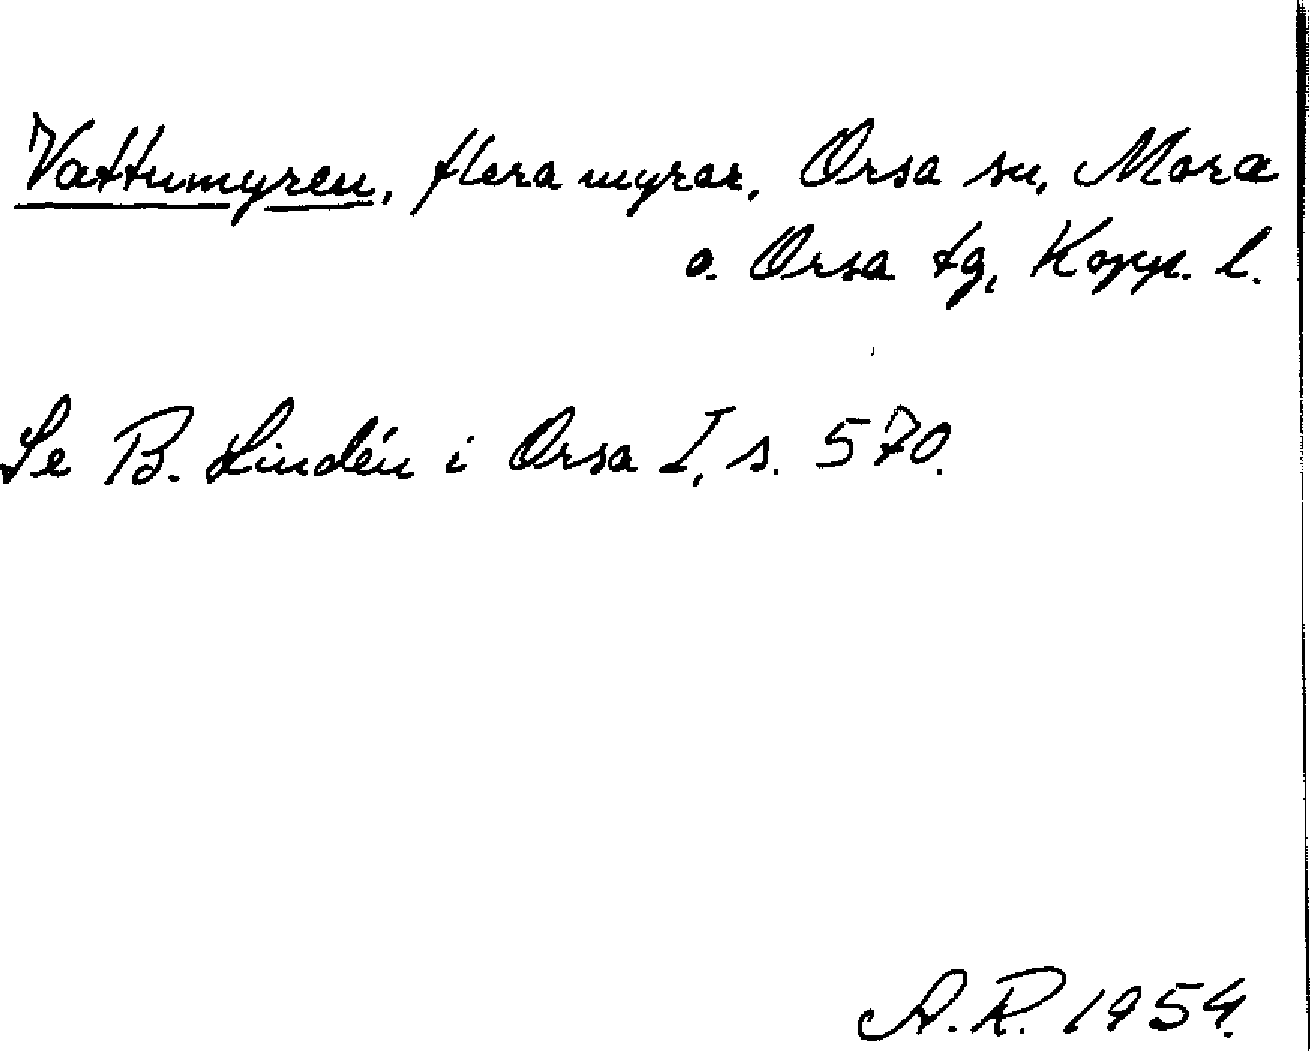 Vattumyren, flera myrar, Orsa sn, Mora
o. Orsa tg, Kopp. l.
Se B. Lindén i Orsa I, s. 570.
A.R. 1954.